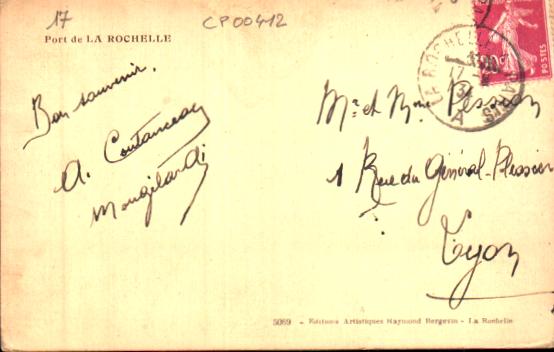 17
CP00412
Port de LA ROCHELLE
Bon souvenir.
A. Coutanceau
Mr et Mme Plessier
1 Rue du Général-Plessier
Lyon
LA ROCHELLE
17
POSTES
5069 - Editions Artistiques Raymond Bergevin - La Rochelle